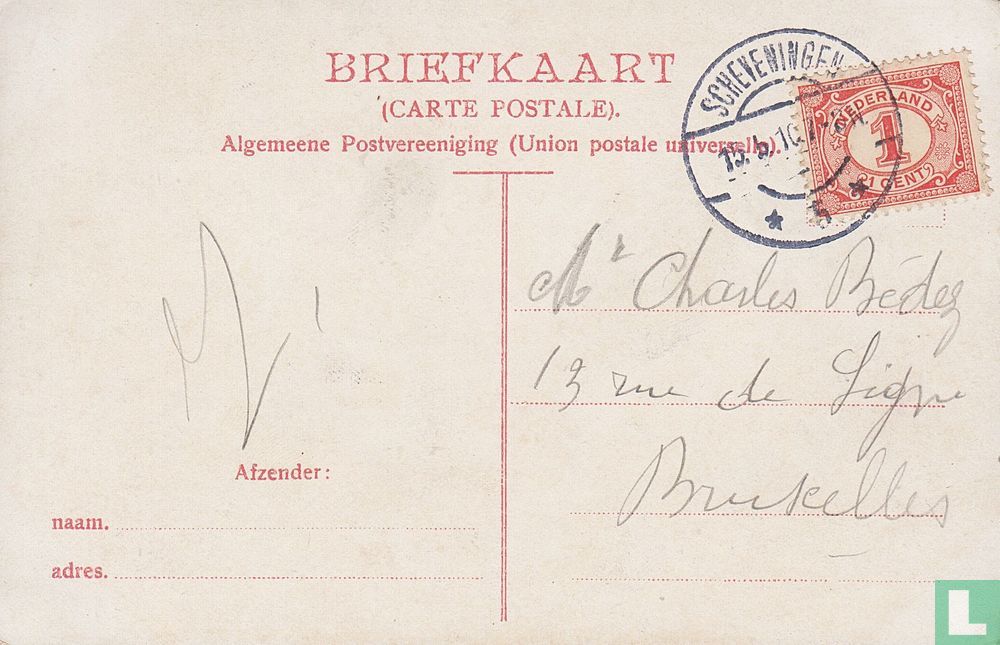 BRIEFKAART
(CARTE POSTALE).
Algemeene Postvereeniging (Union postale universelle).
SCHEVENINGEN
NEDERLAND
1
1 CENT
Mr Charles
13 rue de Ligne
Bruxelles
Afzender:
naam.
adres.
L